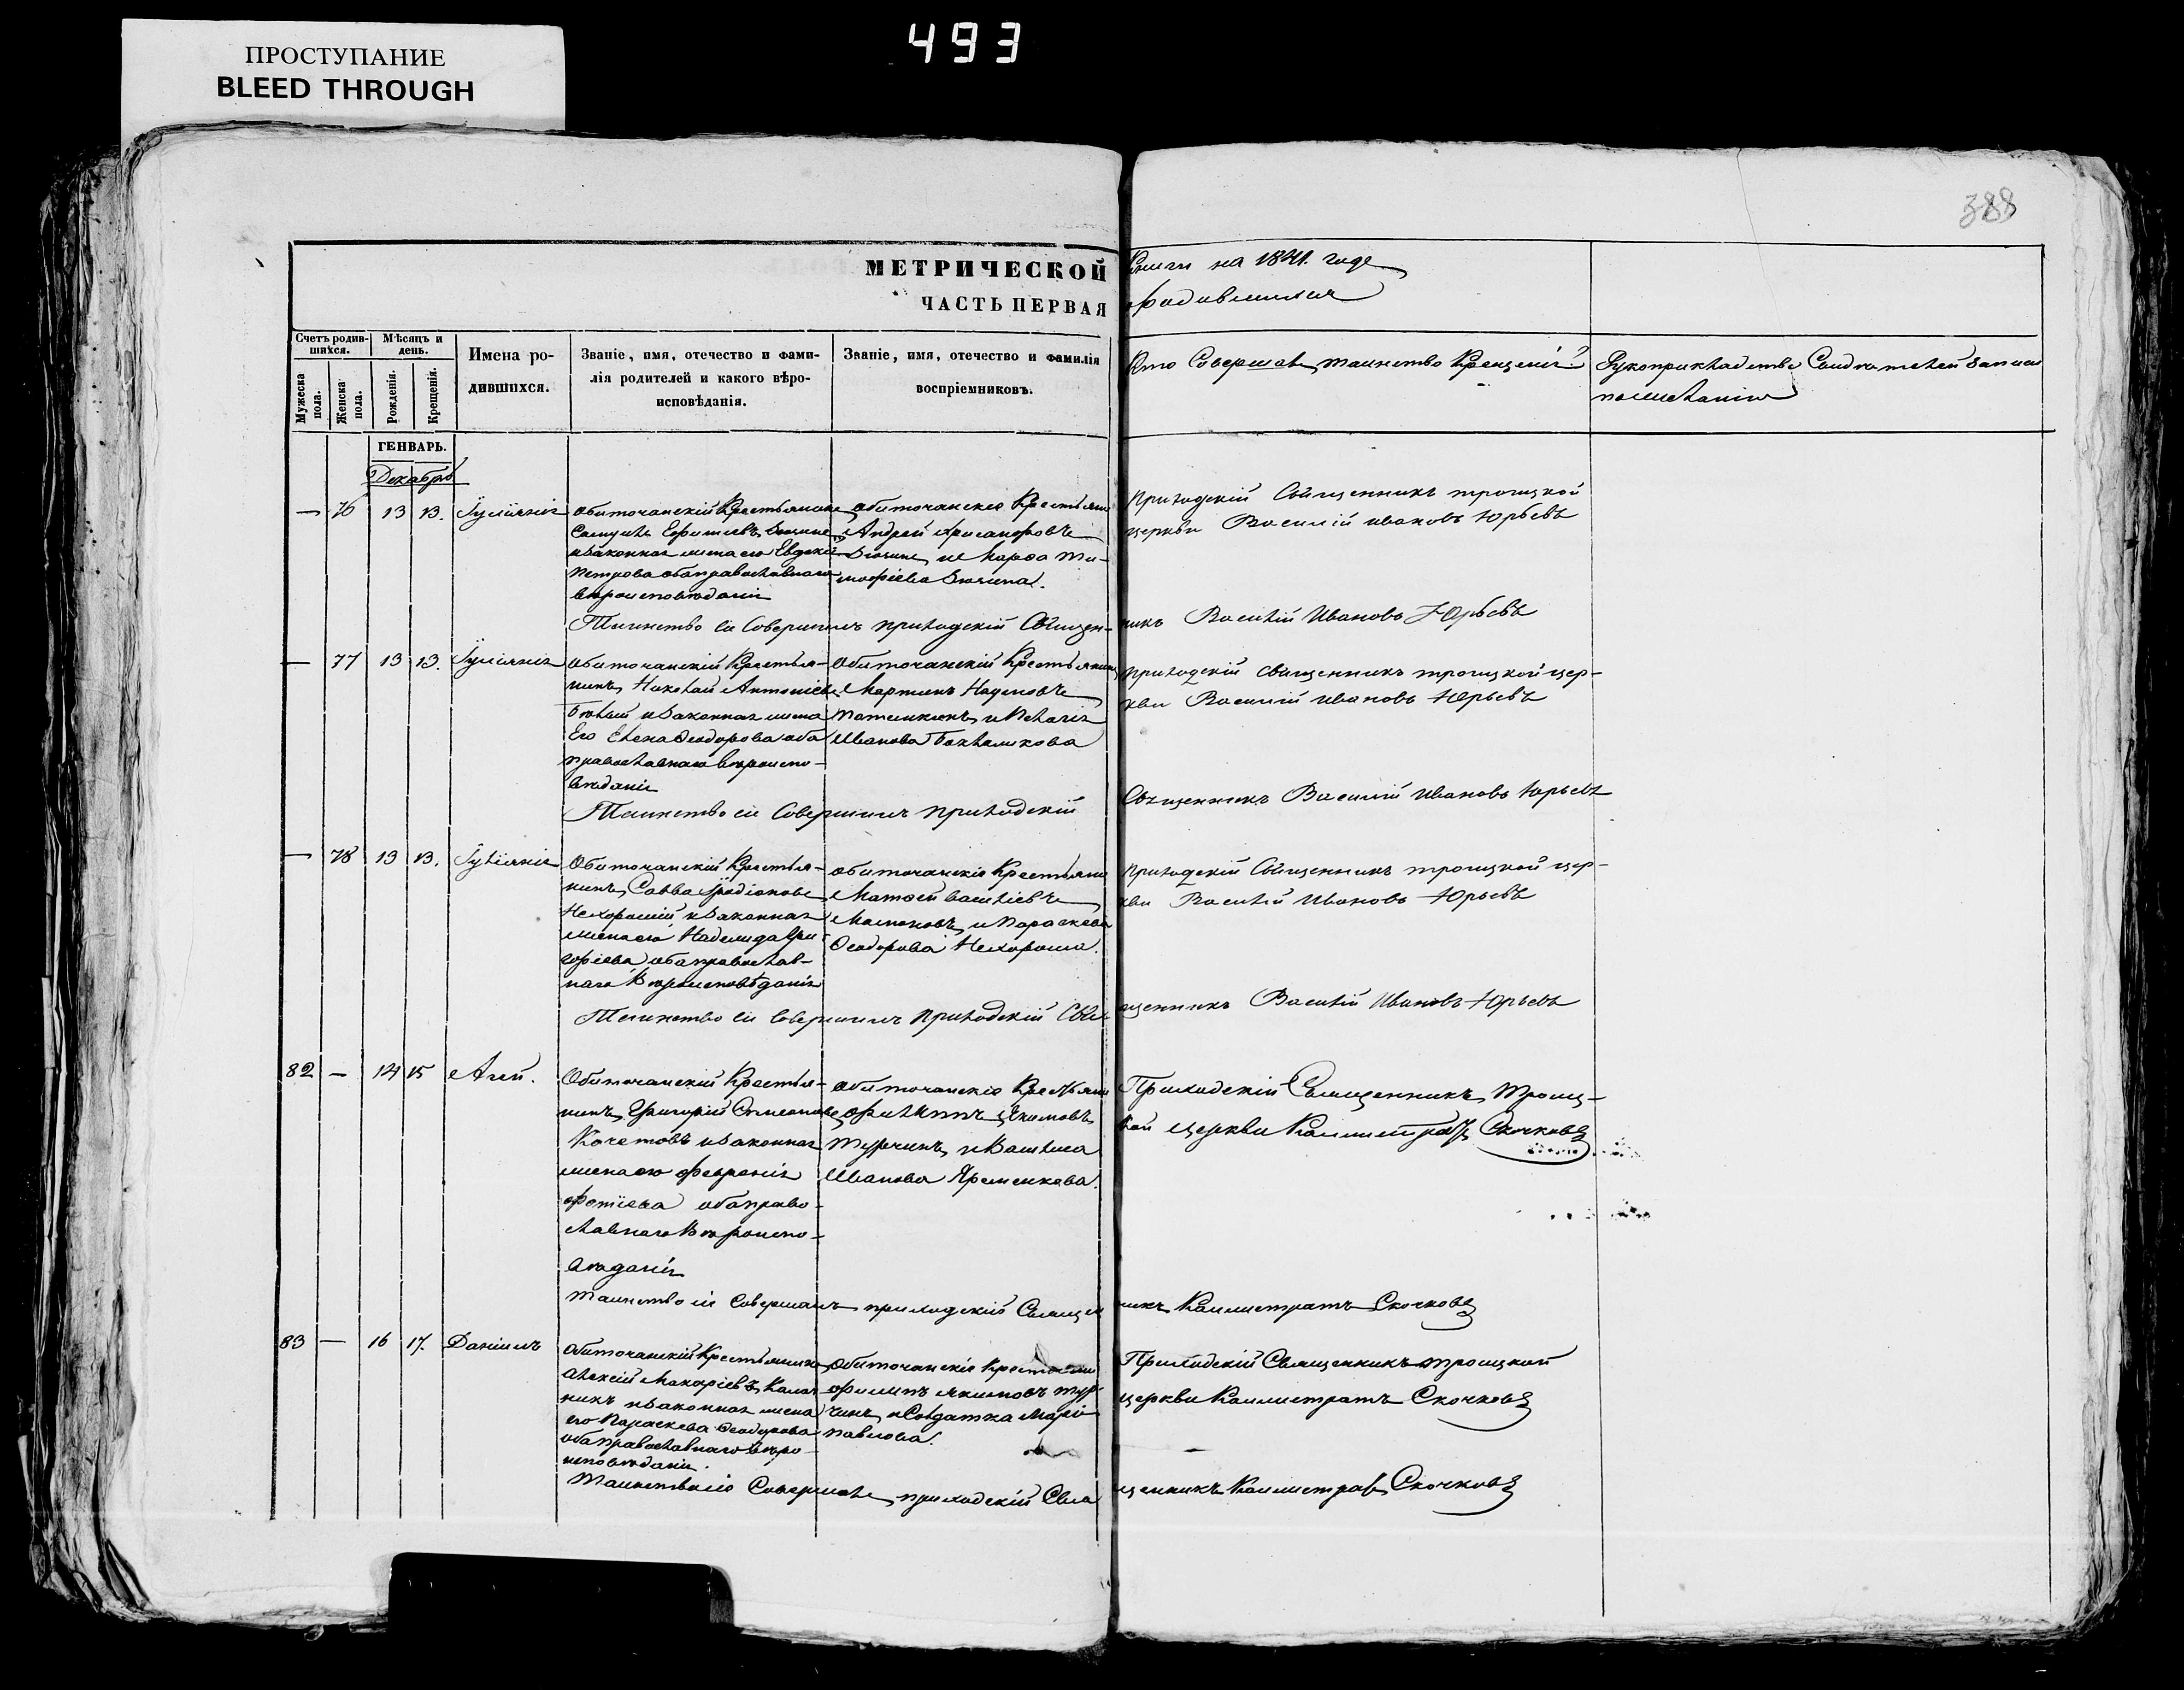 ПРОСТУПАНИЕ
BLEED THROUGH
493
388
МЕТРИЧЕСКОЙ Книги на 1841. годе
ЧАСТЬ ПЕРВАЯ о родившихся
Счетъ родившихся.
Мужеска пола.
Женска пола.
Мѣсяцъ и день.
Рожденія.
Крещенія.
Имена родившихся.
Званіе, имя, отечество и фамилія родителей и какого вѣроисповѣданія.
Званіе, имя, отечество и фамилія воспріемниковъ.
Кто Совершалъ таинство Крещенія
Рукоприкладство Свидѣтелей записи
по желанію
ГЕНВАРЬ.
Декабрь
— 76 13 13. Іуліанія
Обиточанскій Крестьянинъ
и законная жена его Евдокія
Петрова оба православнаго
вѣроисповѣданія
обиточанскіе Крестьяне
Андрей Хрисанфовъ
Зюзинъ и Марфа Ти-
мофіева Зюзина.
Приходскій Священникъ троицкой
церкви Василій ивановъ Юрьевъ
Таинство сіе Совершилъ приходскій Священ-никъ Василій Ивановъ Юрьевъ
— 77 13 13. Іуліанія
Обиточанскій Крестья-
нинъ Николай Антоніевъ
Бѣлый и законная жена
Его Елена Феодорова оба
православнаго вѣроиспо-
вѣданія
Обиточанскій Крестьянинъ
Мартинъ
и Пелагія
Иванова
приходскій священникъ троицкой цер-
кви Василій ивановъ Юрьевъ
Таинство сіе Совершилъ приходскій Священникъ Василій Ивановъ Юрьевъ
— 78 13 13. Іуліанія
Обиточанскій Крестья-
нинъ Савва Иродіоновъ
Нехорошій и законная
жена его Надежда Гри-
горіева оба православ-
наго Вѣроисповѣданія
обиточанскіе Крестьяне
Матфей Василіевъ
и Параскева
Феодорова Нехороша.
приходскій Священникъ троицкой цер-
кви Василій Ивановъ Юрьевъ
Таинство сіе Совершилъ приходскій Священникъ Василій Ивановъ Юрьевъ
82 — 14 15 Агей.
Обиточанскій Крестья-
нинъ Григорій Симеоновъ
Кочетовъ и законная
жена его Февронія
Фотіева оба право-
славнаго Вѣроиспо-
вѣданія
обиточанскіе Крестьяне
Филиппъ Якимовъ
Турчинъ и Василиса
Иванова Яременкова.
Приходскій Священникъ Троиц-
кой церкви Каллистратъ Скочковъ
Таинство сіе Совершалъ приходскій Священникъ Каллистратъ Скочковъ
83 — 16 17. Даніилъ
Обиточанскій Крестьянинъ
Алексій Макаріевъ Калач-
никъ и законная жена
его Параскева Феодорова
оба православнаго Вѣро-
исповѣданія.
Обиточанскіе Крестьяне
Филипъ Якимовъ тур-
чинъ и Солдатка Марія
павлова.
Приходскій Священникъ троицкой
церкви Каллистратъ Скочковъ
Таинство сіе Совершалъ приходскій Священникъ Каллистратъ Скочковъ